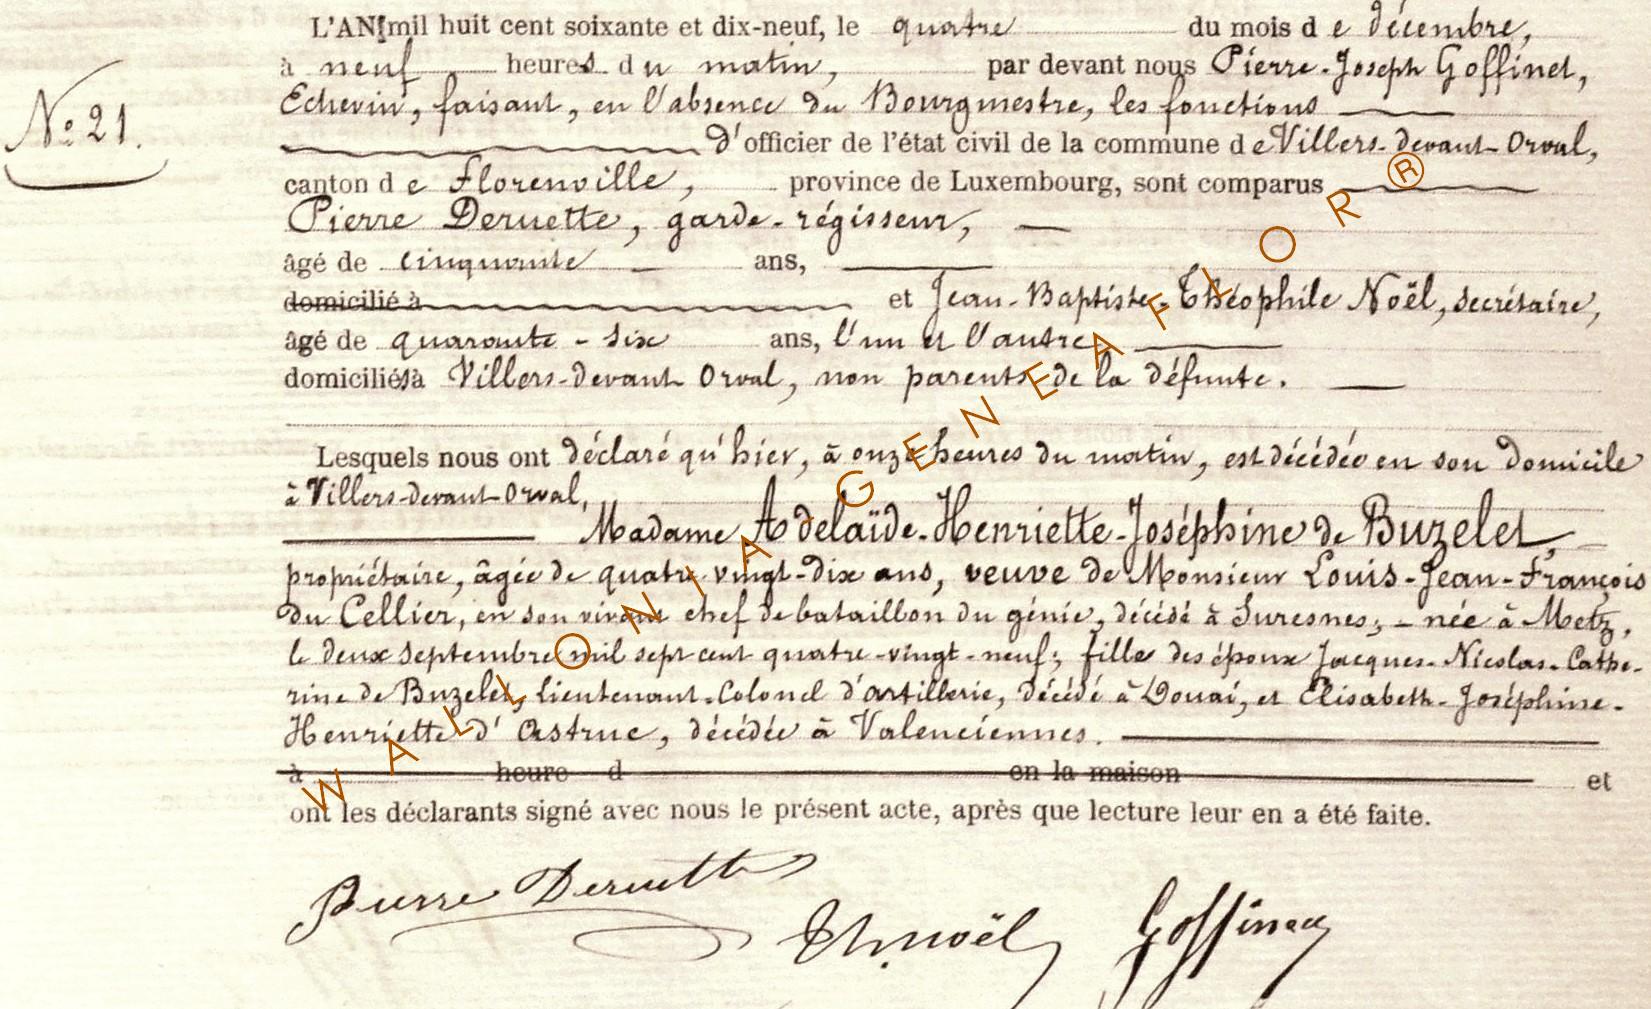 L'AN mil huit cent soixante et dix-neuf, le quatre du mois de décembre,
à neuf heures du matin, par devant nous Pierre-Joseph Goffinet,
Echevin, faisant, en l'absence du Bourgmestre, les fonctions
N° 21.
d'officier de l'état civil de la commune de Villers-devant-Orval,
canton de Florenville, province de Luxembourg, sont comparus
Pierre Deruette, garde-régisseur,
âgé de cinquante ans,
domicilié à et Jean-Baptiste-Théophile Noël, secrétaire,
âgé de quarante-six ans, l'un et l'autre
domiciliés à Villers-devant Orval, non parents de la défunte.
Lesquels nous ont déclaré qu'hier, à onze heures du matin, est décédée en son domicile
à Villers-devant-Orval,
Madame Adelaïde-Henriette-Joséphine de Buzelet,
propriétaire, âgée de quatre vingt-dix ans, veuve de Monsieur Louis-Jean-François
du Cellier, en son vivant chef de bataillon du génie, décédé à Suresnes; - née à Metz,
le deux septembre mil sept cent quatre-vingt-neuf; fille des époux Jacques-Nicolas-Cathe-
rine de Buzelet, lieutenant-Colonel d'artillerie, décédé à Douai, et Elisabeth-Joséphine-
Henriette d'Astruc, décédée à Valenciennes.
à heure d en la maison et
ont les déclarants signé avec nous le présent acte, après que lecture leur en a été faite.
Pierre Deruette
Th. Noël
Goffinet
WALLONIA - GENEAFLOR ®